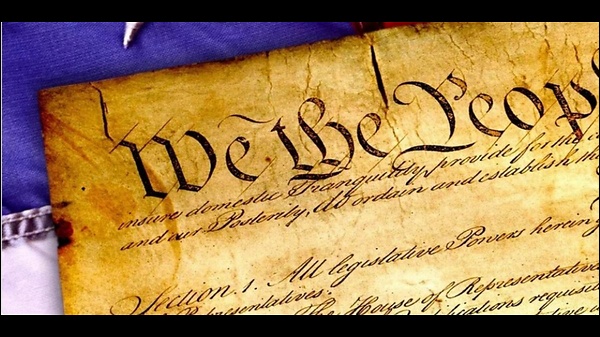 We the Peop
insure domestic Tranquility, provide for the c
and our Posterity, do ordain and establish th
Section. 1. All legislative Powers herein
Representatives.
The House of Representative